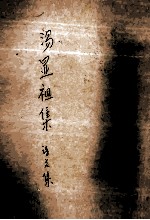 湯显祖集 诗文集